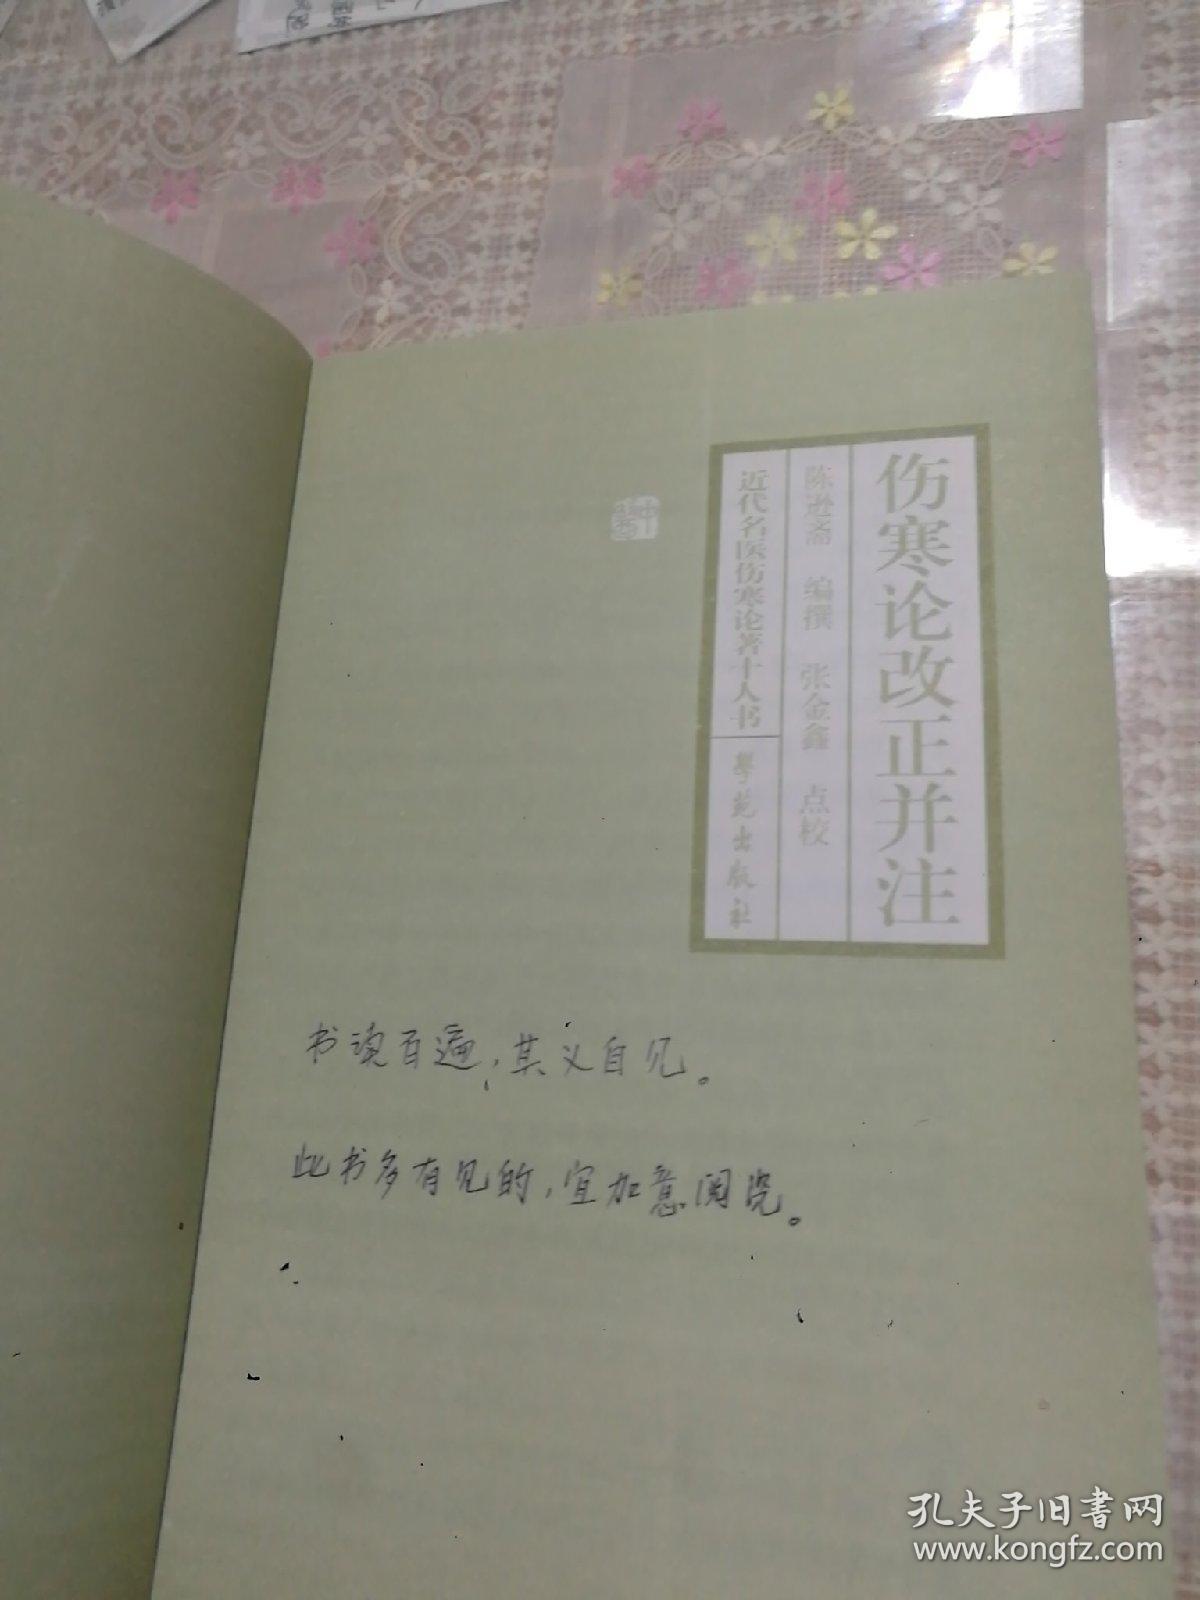 伤寒论改正并注
陈逊斋 编撰 张金鑫 点校
近代名医伤寒论著十人书
学苑出版社
书读百遍，其义自见。
此书多有见的，宜加意阅览。
孔夫子旧书网
www.kongfz.com